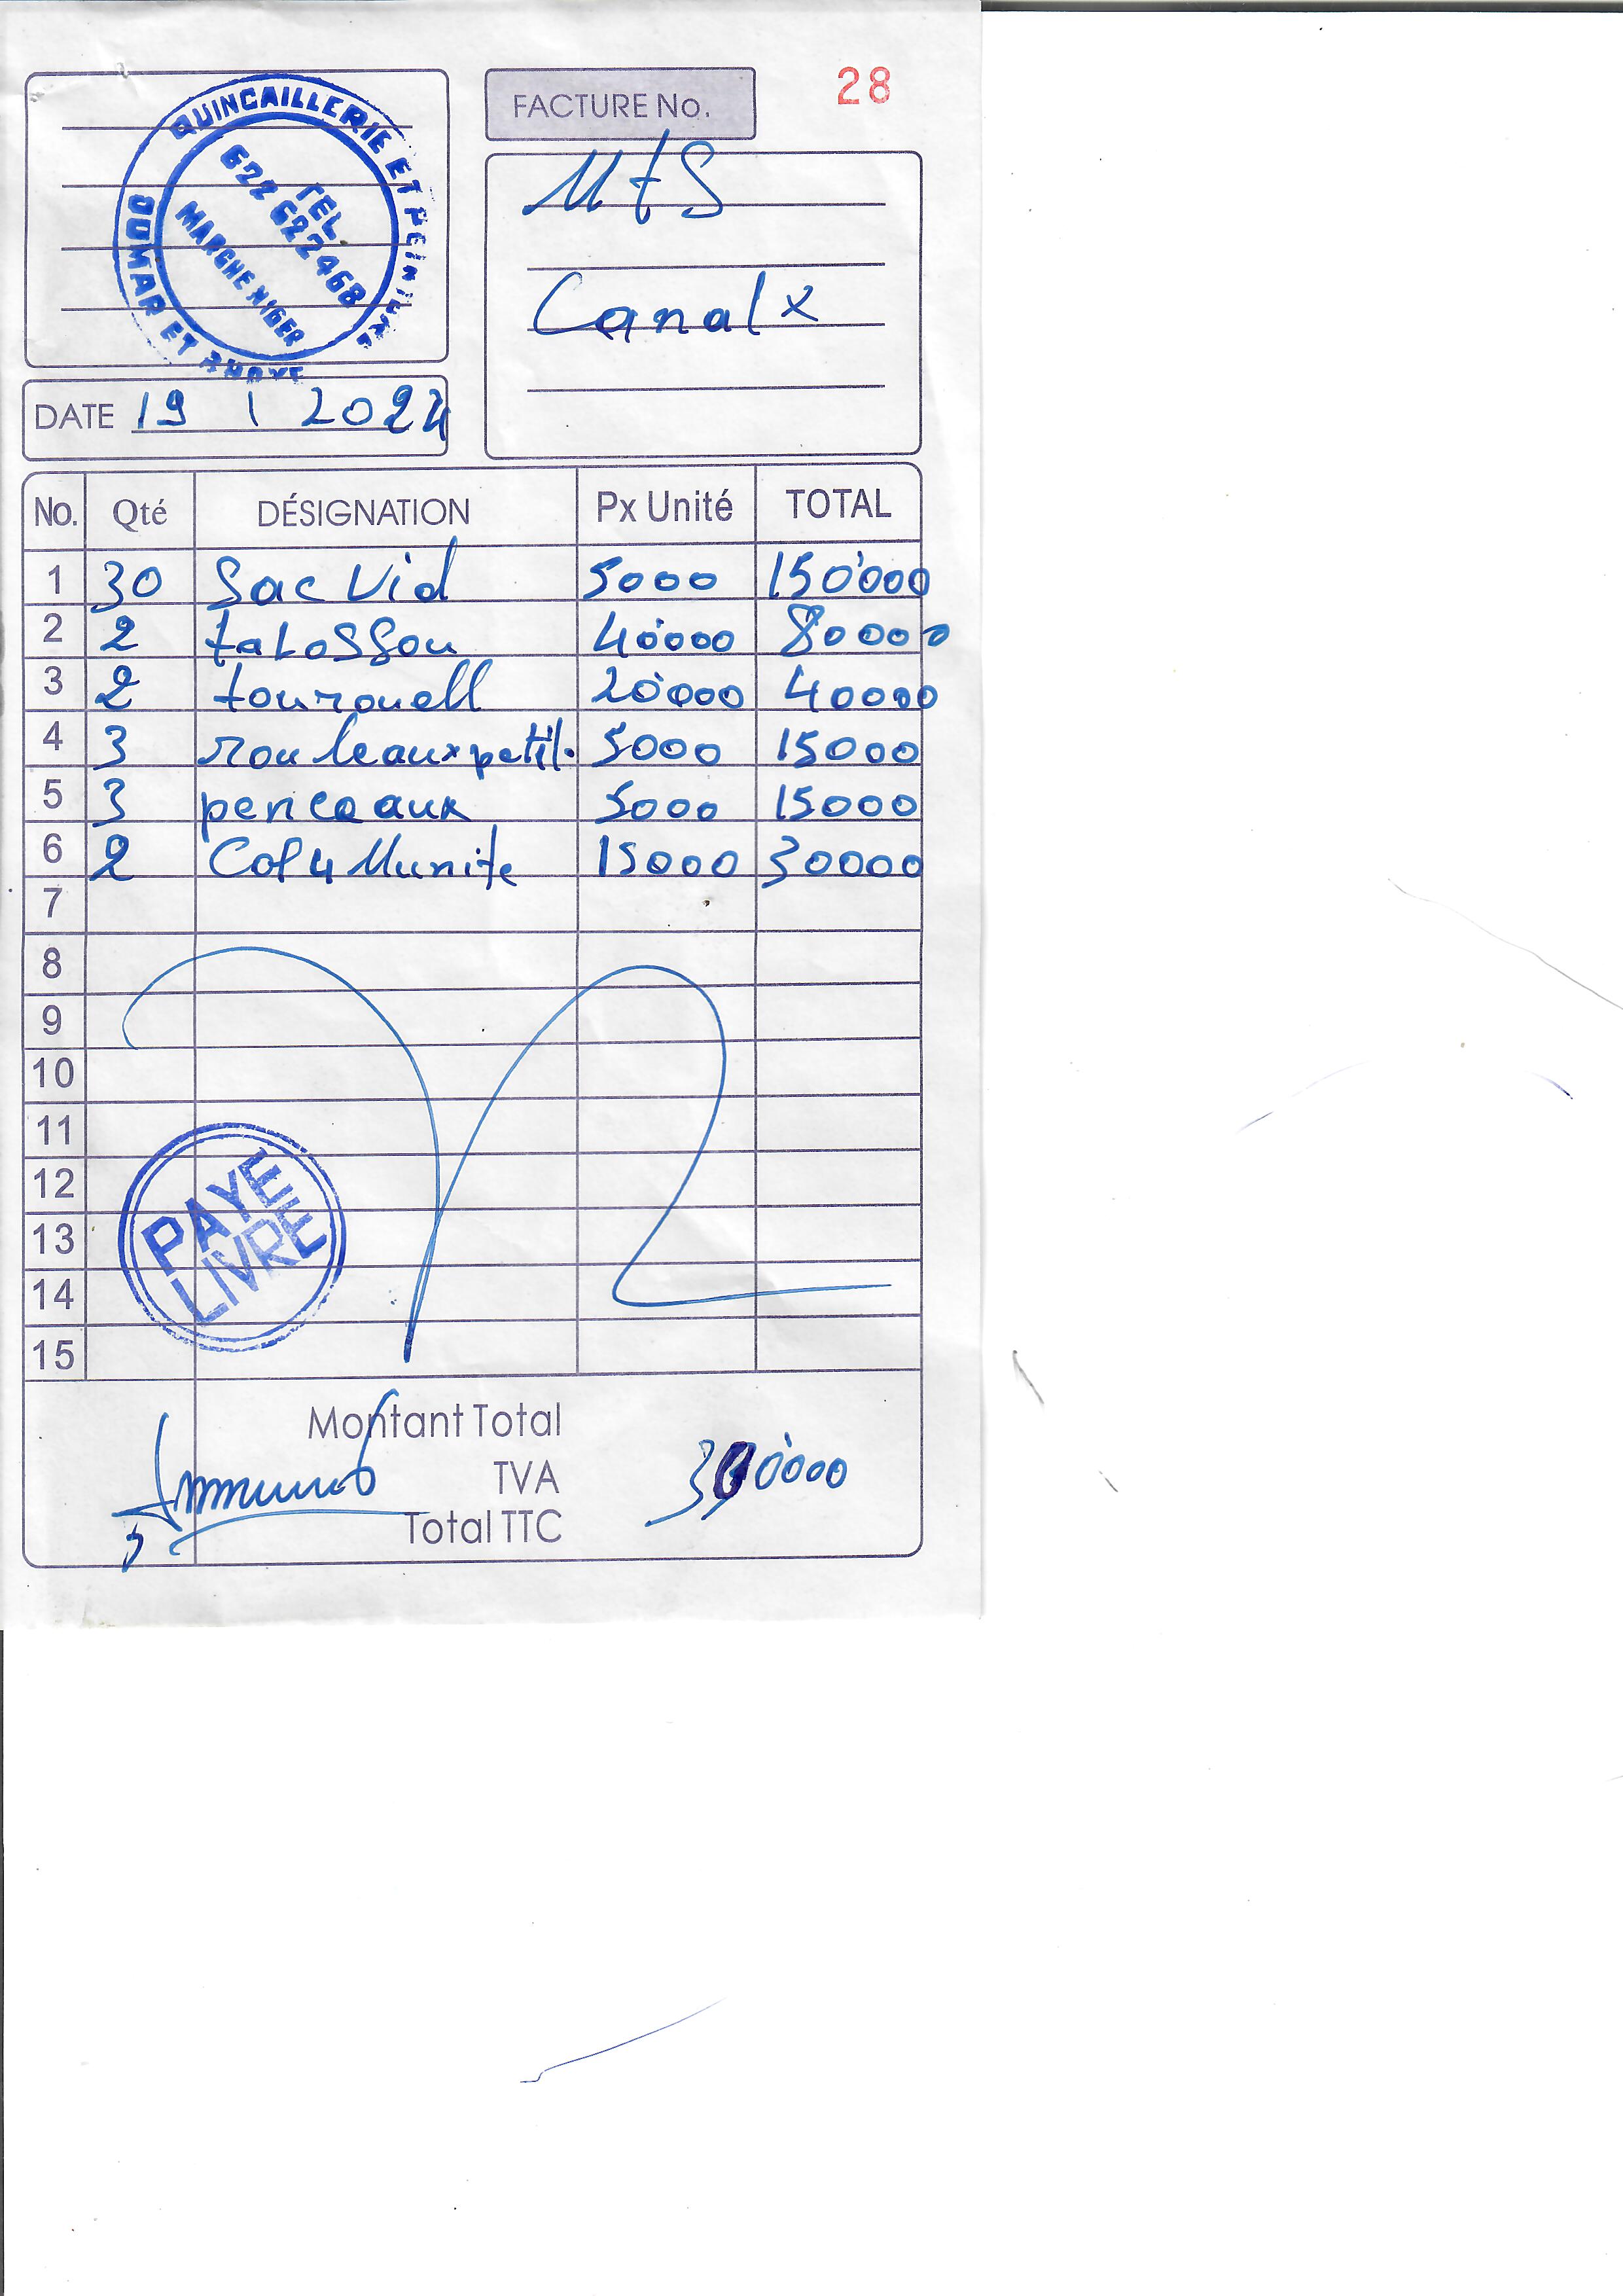 QUINCAILLERIE ET PEINTURE
OUMAR ET
TEL
622 622 468
MARCHE NIGER
FACTURE No. 28
MtS
Canal x
DATE 19 1 2024
No. Qté DÉSIGNATION Px Unité TOTAL
1 30 Sac Vid 5000 150'000
2 2 taLoSSou 40'000 80000
3 2 tourouell 20'000 40000
4 3 rouleaux petit. 5000 15000
5 3 penceaux 5000 15000
6 2 15000 30000
7
8
9
10
11
12
13
14
15
PAYE
LIVRE
Montant Total
TVA 330'000
Total TTC